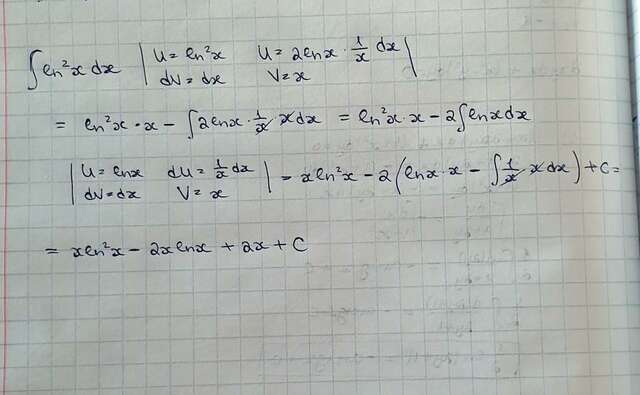 ∫ ln²x dx | U = ln²x   U = 2lnx · 1/x dx |
| dV = dx   V = x |
= ln²x · x − ∫ 2lnx · 1/x · x dx = ln²x · x − 2∫ lnx dx
| U = lnx   dU = 1/x dx |
| dV = dx   V = x | = x ln²x − 2(lnx · x − ∫ 1/x · x dx) + C =
= x ln²x − 2x lnx + 2x + C